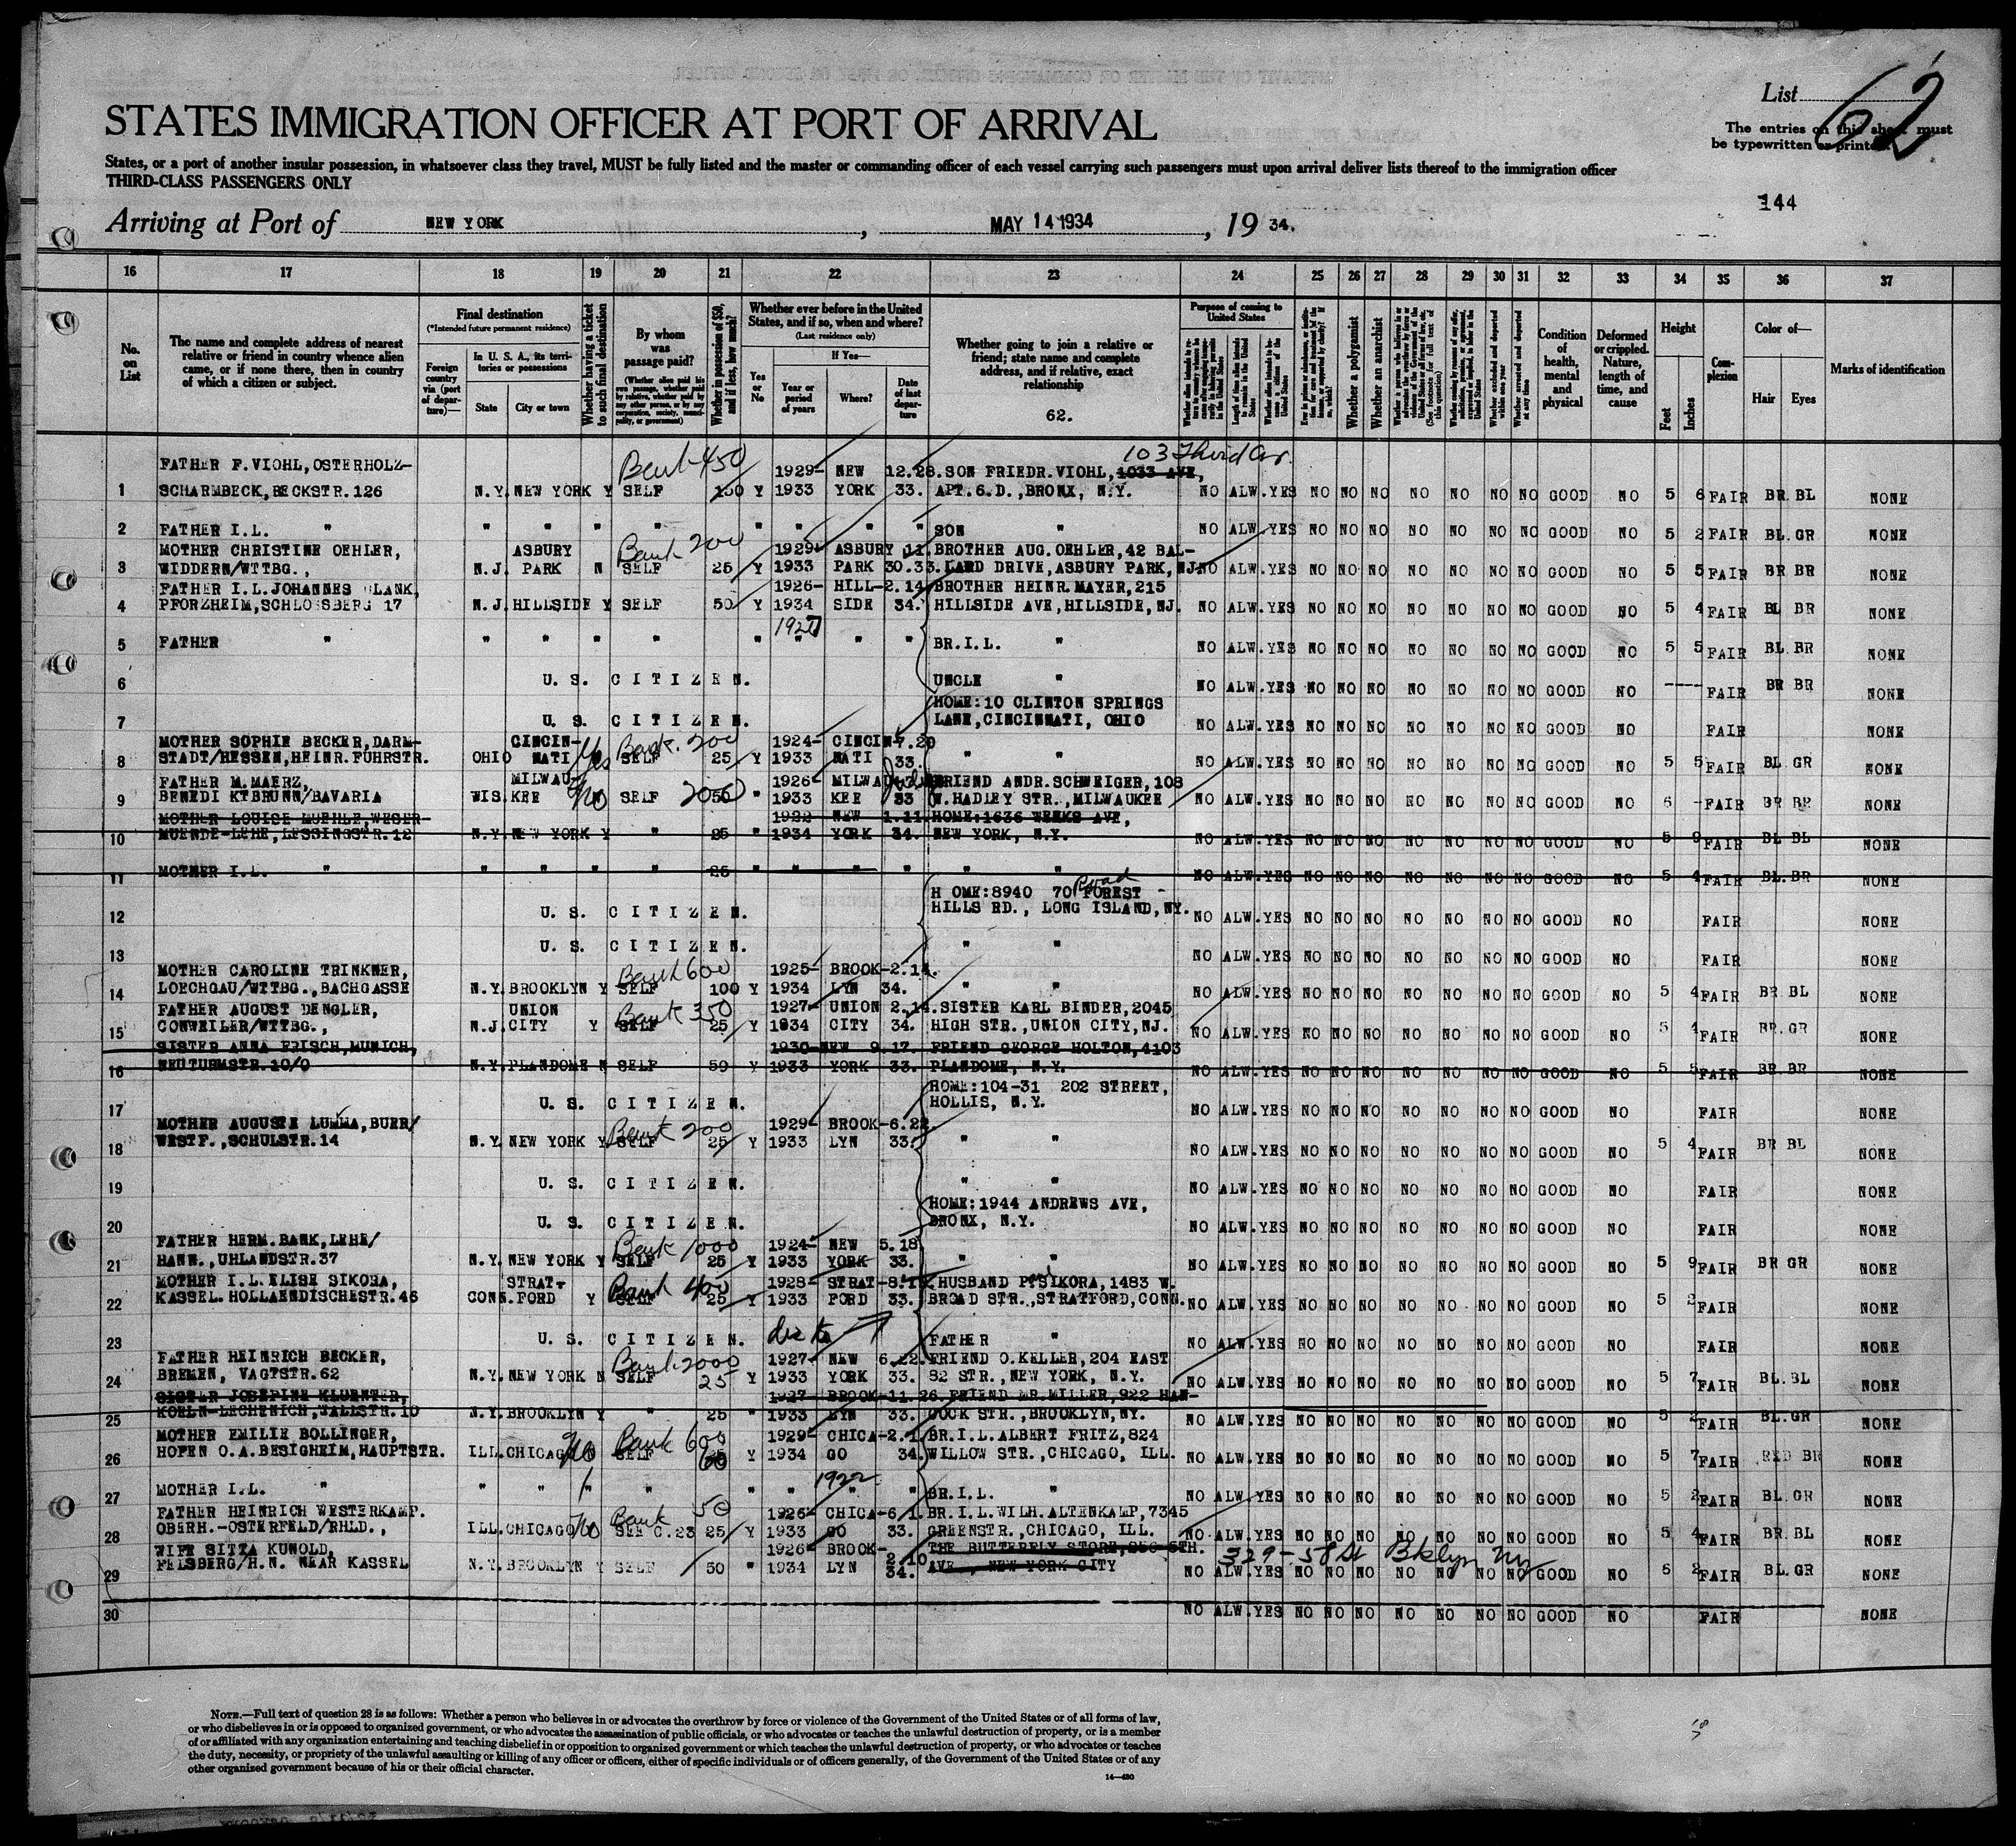 List 62
STATES IMMIGRATION OFFICER AT PORT OF ARRIVAL
The entries on this sheet must
be typewritten or printed.
States, or a port of another insular possession, in whatsoever class they travel, MUST be fully listed and the master or commanding officer of each vessel carrying such passengers must upon arrival deliver lists thereof to the immigration officer
THIRD-CLASS PASSENGERS ONLY
144
Arriving at Port of NEW YORK, MAY 14 1934, 19 34.
16 17 18 19 20 21 22 23 24 25 26 27 28 29 30 31 32 33 34 35 36 37
No. on List
The name and complete address of nearest relative or friend in country whence alien came, or if none there, then in country of which a citizen or subject.
Final destination
(*Intended future permanent residence)
Foreign country via (port of departure)—
In U. S. A., its territories or possessions
State City or town
Whether having a ticket to such final destination
By whom was passage paid?
(Whether alien paid his own passage, whether paid by relative, whether paid by any other person, or by any corporation, society, municipality, or government)
Whether in possession of $50, and if less, how much?
Whether ever before in the United States, and if so, when and where?
(Last residence only)
Yes or No
If Yes—
Year or period of years Where? Date of last departure
Whether going to join a relative or friend; state name and complete address, and if relative, exact relationship
62.
Purpose of coming to United States
Length of time alien intends to remain in the United States
Whether a polygamist
Whether an anarchist
Condition of health, mental and physical
Deformed or crippled. Nature, length of time, and cause
Height
Feet Inches
Complexion
Color of—
Hair Eyes
Marks of identification
Bank 450 103 Third Av.
FATHER F. VIOHL, OSTERHOLZ- 1929- NEW 12.28. SON FRIEDR. VIOHL, 1033 AVE,
1 SCHARMBECK, BECKSTR. 126 N.Y. NEW YORK Y SELF 150 Y 1933 YORK 33. APT. 6.D., BRONX, N.Y. NO ALW. YES NO NO NO NO NO NO NO GOOD NO 5 6 FAIR BR. BL NONE
2 FATHER I.L. " " " " " " " " " SON " NO ALW. YES NO NO NO NO NO NO NO GOOD NO 5 2 FAIR BL. GR NONE
MOTHER CHRISTINE OEHLER, ASBURY Bank 200 1929- ASBURY 11. BROTHER AUG. OEHLER, 42 BAL-
3 WIDDERN/WTTBG., N.J. PARK N SELF 25 Y 1933 PARK 30.33. LARD DRIVE, ASBURY PARK, NJ. NO ALW. YES NO NO NO NO NO NO NO GOOD NO 5 5 FAIR BR BR NONE
FATHER I.L. JOHANNES BLANK, 1926- HILL- 2.14. BROTHER HEINR. MAYER, 215
4 PFORZHEIM, SCHLOSSBERG 17 N.J. HILLSIDE Y SELF 50 Y 1934 SIDE 34. HILLSIDE AVE, HILLSIDE, NJ. NO ALW. YES NO NO NO NO NO NO NO GOOD NO 5 4 FAIR BL BR NONE
1927
5 FATHER " " " " " " " " " BR. I.L. " NO ALW. YES NO NO NO NO NO NO NO GOOD NO 5 5 FAIR BL. BR NONE
6 U. S. CITIZEN. UNCLE " NO ALW. YES NO NO NO NO NO NO NO GOOD NO ---- FAIR BR BR NONE
HOME: 10 CLINTON SPRINGS
7 U. S. CITIZEN. LANE, CINCINNATI, OHIO NO ALW. YES NO NO NO NO NO NO NO GOOD NO FAIR NONE
MOTHER SOPHIE BECKER, DARM- CINCIN- Bank. 200 1924- CINCIN- 7.20
8 STADT/HESSEN, HEINR. FUHRSTR. OHIO NATI Yes SELF 25 Y 1933 NATI 33. " " NO ALW. YES NO NO NO NO NO NO NO GOOD NO 5 5 FAIR BL. GR NONE
FATHER M. MAERZ, MILWAU- 1926- MILWAU- FRIEND ANDR. SCHWEIGER, 108
9 BENEDIKTBRUNN/BAVARIA WIS. KEE No SELF 200 50 " 1933 KEE 33 W. HADLEY STR., MILWAUKEE NO ALW. YES NO NO NO NO NO NO NO GOOD NO 6 - FAIR BR BR NONE
MOTHER LOUISE MUEHLE, WESER- 1922- NEW 1.11. HOME: 1636 WEEKS AVE,
10 MUENDE-LEHE, LESSINGSTR. 12 N.Y. NEW YORK Y " 25 " 1934 YORK 34. NEW YORK, N.Y. NO ALW. YES NO NO NO NO NO NO NO GOOD NO 5 9 FAIR BL BL NONE
11 MOTHER I.L. " " " " " 25 " " " " " " NO ALW. YES NO NO NO NO NO NO NO GOOD NO 5 4 FAIR BL. BR NONE
HOME: 8940 70 Road FOREST -
12 U. S. CITIZEN. HILLS RD., LONG ISLAND, NY. NO ALW. YES NO NO NO NO NO NO NO GOOD NO FAIR NONE
13 U. S. CITIZEN. " " NO ALW. YES NO NO NO NO NO NO NO GOOD NO FAIR NONE
MOTHER CAROLINE TRINKNER, Bank 600 1925- BROOK- 2.14.
14 LOECHGAU/WTTBG., BACHGASSE N.Y. BROOKLYN Y SELF 100 Y 1934 LYN 34. " " NO ALW. YES NO NO NO NO NO NO NO GOOD NO 5 4 FAIR BR. BL NONE
FATHER AUGUST DENGLER, UNION Bank 350 1927- UNION 2.14. SISTER KARL BINDER, 2045
15 CONWEILER/WTTBG., N.J. CITY Y SELF 25 Y 1934 CITY 34. HIGH STR., UNION CITY, NJ. NO ALW. YES NO NO NO NO NO NO NO GOOD NO 5 4 FAIR BR. GR NONE
SISTER ANNA FRISCH, MUNICH, 1930- NEW 9.17. FRIEND GEORGE HOLTON, 4103
16 NEUTURMSTR. 10/0 N.Y. PLANDOME N SELF 50 Y 1933 YORK 33. PLANDOME, N.Y. NO ALW. YES NO NO NO NO NO NO NO GOOD NO 5 5 FAIR BR. BR NONE
HOME: 104-31 202 STREET,
17 U. S. CITIZEN. HOLLIS, N.Y. NO ALW. YES NO NO NO NO NO NO NO GOOD NO FAIR NONE
MOTHER AUGUSTE LUMMA, BUER/ Bank 200 1929- BROOK- 6.22
18 WESTF., SCHULSTR. 14 N.Y. NEW YORK Y SELF 25 Y 1933 LYN 33. " " NO ALW. YES NO NO NO NO NO NO NO GOOD NO 5 4 FAIR BR BL NONE
19 U. S. CITIZEN. " " NO ALW. YES NO NO NO NO NO NO NO GOOD NO FAIR NONE
HOME: 1944 ANDREWS AVE,
20 U. S. CITIZEN. BRONX, N.Y. NO ALW. YES NO NO NO NO NO NO NO GOOD NO FAIR NONE
FATHER HERM. BANK, LEHE/ Bank 1000 1924- NEW 5.18
21 HANN., UHLANDSTR. 37 N.Y. NEW YORK Y SELF 25 Y 1933 YORK 33. " " NO ALW. YES NO NO NO NO NO NO NO GOOD NO 5 9 FAIR BR GR NONE
MOTHER I.L. ELISE SIKORA, STRAT- Bank 400 1928- STRAT- HUSBAND P. SIKORA, 1483 W.
22 KASSEL. HOLLAENDISCHESTR. 46 CONN. FORD Y SELF 25 Y 1933 FORD 33. BROAD STR., STRATFORD, CONN. NO ALW. YES NO NO NO NO NO NO NO GOOD NO 5 2 FAIR NONE
23 U. S. CITIZEN. FATHER " NO ALW. YES NO NO NO NO NO NO NO GOOD NO FAIR NONE
FATHER HEINRICH BECKER, Bank 2000 1927- NEW 6.22. FRIEND O. KELLER, 204 EAST
24 BREMEN, VAGTSTR. 62 N.Y. NEW YORK N SELF 25 Y 1933 YORK 33. 82 STR., NEW YORK, N.Y. NO ALW. YES NO NO NO NO NO NO NO GOOD NO 5 7 FAIR BL. BL NONE
SISTER JOSEPINE KLUENTER, 1927- BROOK- 11.26. FRIEND MR. MILLER, 922 HAN-
25 KOELN-LECHENICH, WALLSTR. 10 N.Y. BROOKLYN Y " 25 " 1933 LYN 33. COCK STR., BROOKLYN, NY. NO ALW. YES NO NO NO NO NO NO NO GOOD NO 5 2 FAIR BL. GR NONE
MOTHER EMILIE BOLLINGER, Bank 600 1929- CHICA- 2.1. BR. I.L. ALBERT FRITZ, 824
26 HOFEN O.A. BESIGHEIM, HAUPTSTR. ILL. CHICAGO No SELF 60 Y 1934 GO 34. WILLOW STR., CHICAGO, ILL. NO ALW. YES NO NO NO NO NO NO NO GOOD NO 5 7 FAIR RED BR NONE
1922
27 MOTHER I.L. " " " " " " " " " BR. I.L. " NO ALW. YES NO NO NO NO NO NO NO GOOD NO 5 2 FAIR BL. GR NONE
FATHER HEINRICH WESTERKAMP. Bank 50 1925- CHICA- 6.1. BR. I.L. WILH. ALTENKAMP, 7345
28 OBERH.-OSTERFELD/RHLD., ILL. CHICAGO No SEE C. 23 25 Y 1933 GO 33. GREENSTR., CHICAGO, ILL. NO ALW. YES NO NO NO NO NO NO NO GOOD NO 5 4 FAIR BR. BL NONE
WIFE SITTA KUNOLD, 1926- BROOK- 2.10 THE BUTTERFLY STORE, 5TH. 329-58 St Bklyn NY
29 FELSBERG/H.N. NEAR KASSEL N.Y. BROOKLYN Y SELF 50 " 1934 LYN 34. AVE., NEW YORK CITY NO ALW. YES NO NO NO NO NO NO NO GOOD NO 5 2 FAIR BL. GR NONE
30 NO ALW. YES NO NO NO NO NO NO NO GOOD NO FAIR NONE
NOTE.—Full text of question 28 is as follows: Whether a person who believes in or advocates the overthrow by force or violence of the Government of the United States or of all forms of law,
or who disbelieves in or is opposed to organized government, or who advocates the assassination of public officials, or who advocates or teaches the unlawful destruction of property, or is a member
of or affiliated with any organization entertaining and teaching disbelief in or opposition to organized government or which teaches the unlawful destruction of property, or who advocates or teaches
the duty, necessity, or propriety of the unlawful assaulting or killing of any officer or officers, either of specific individuals or of officers generally, of the Government of the United States or of any
other organized government because of his or their official character.
14—480